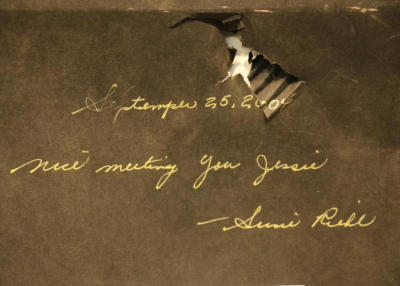 September 25, 200
nice meeting you Jessie
— Susie Riehl